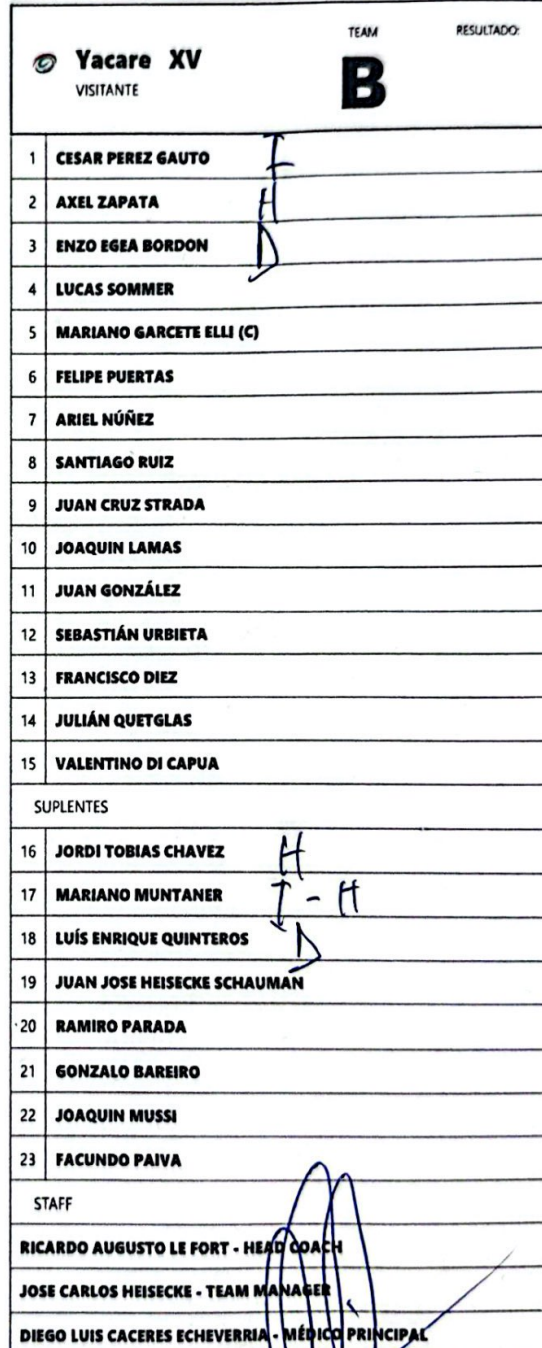 TEAM RESULTADO:
Yacare XV B
VISITANTE
1 CESAR PEREZ GAUTO I
2 AXEL ZAPATA H
3 ENZO EGEA BORDON D
4 LUCAS SOMMER
5 MARIANO GARCETE ELLI (C)
6 FELIPE PUERTAS
7 ARIEL NÚÑEZ
8 SANTIAGO RUIZ
9 JUAN CRUZ STRADA
10 JOAQUIN LAMAS
11 JUAN GONZÁLEZ
12 SEBASTIÁN URBIETA
13 FRANCISCO DIEZ
14 JULIÁN QUETGLAS
15 VALENTINO DI CAPUA
SUPLENTES
16 JORDI TOBIAS CHAVEZ H
17 MARIANO MUNTANER I - H
18 LUÍS ENRIQUE QUINTEROS D
19 JUAN JOSE HEISECKE SCHAUMAN
20 RAMIRO PARADA
21 GONZALO BAREIRO
22 JOAQUIN MUSSI
23 FACUNDO PAIVA
STAFF
RICARDO AUGUSTO LE FORT - HEAD COACH
JOSE CARLOS HEISECKE - TEAM MANAGER
DIEGO LUIS CACERES ECHEVERRIA - MÉDICO PRINCIPAL